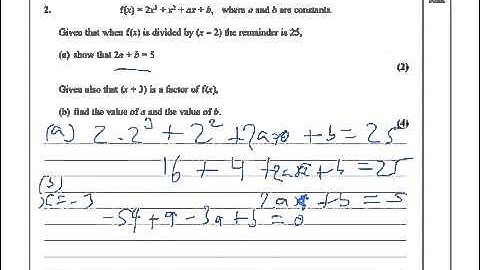 2. f(x) = 2x³ + x² + ax + b, where a and b are constants.
Given that when f(x) is divided by (x – 2) the remainder is 25,
(a) show that 2a + b = 5
(2)
Given also that (x + 3) is a factor of f(x),
(b) find the value of a and the value of b.
(4)
(a) 2·2³ + 2² + 2a + b = 25
16 + 4 + 2a + b = 25
(b)
x = -3 2a + b = 5
-54 + 9 - 3a + b = 0